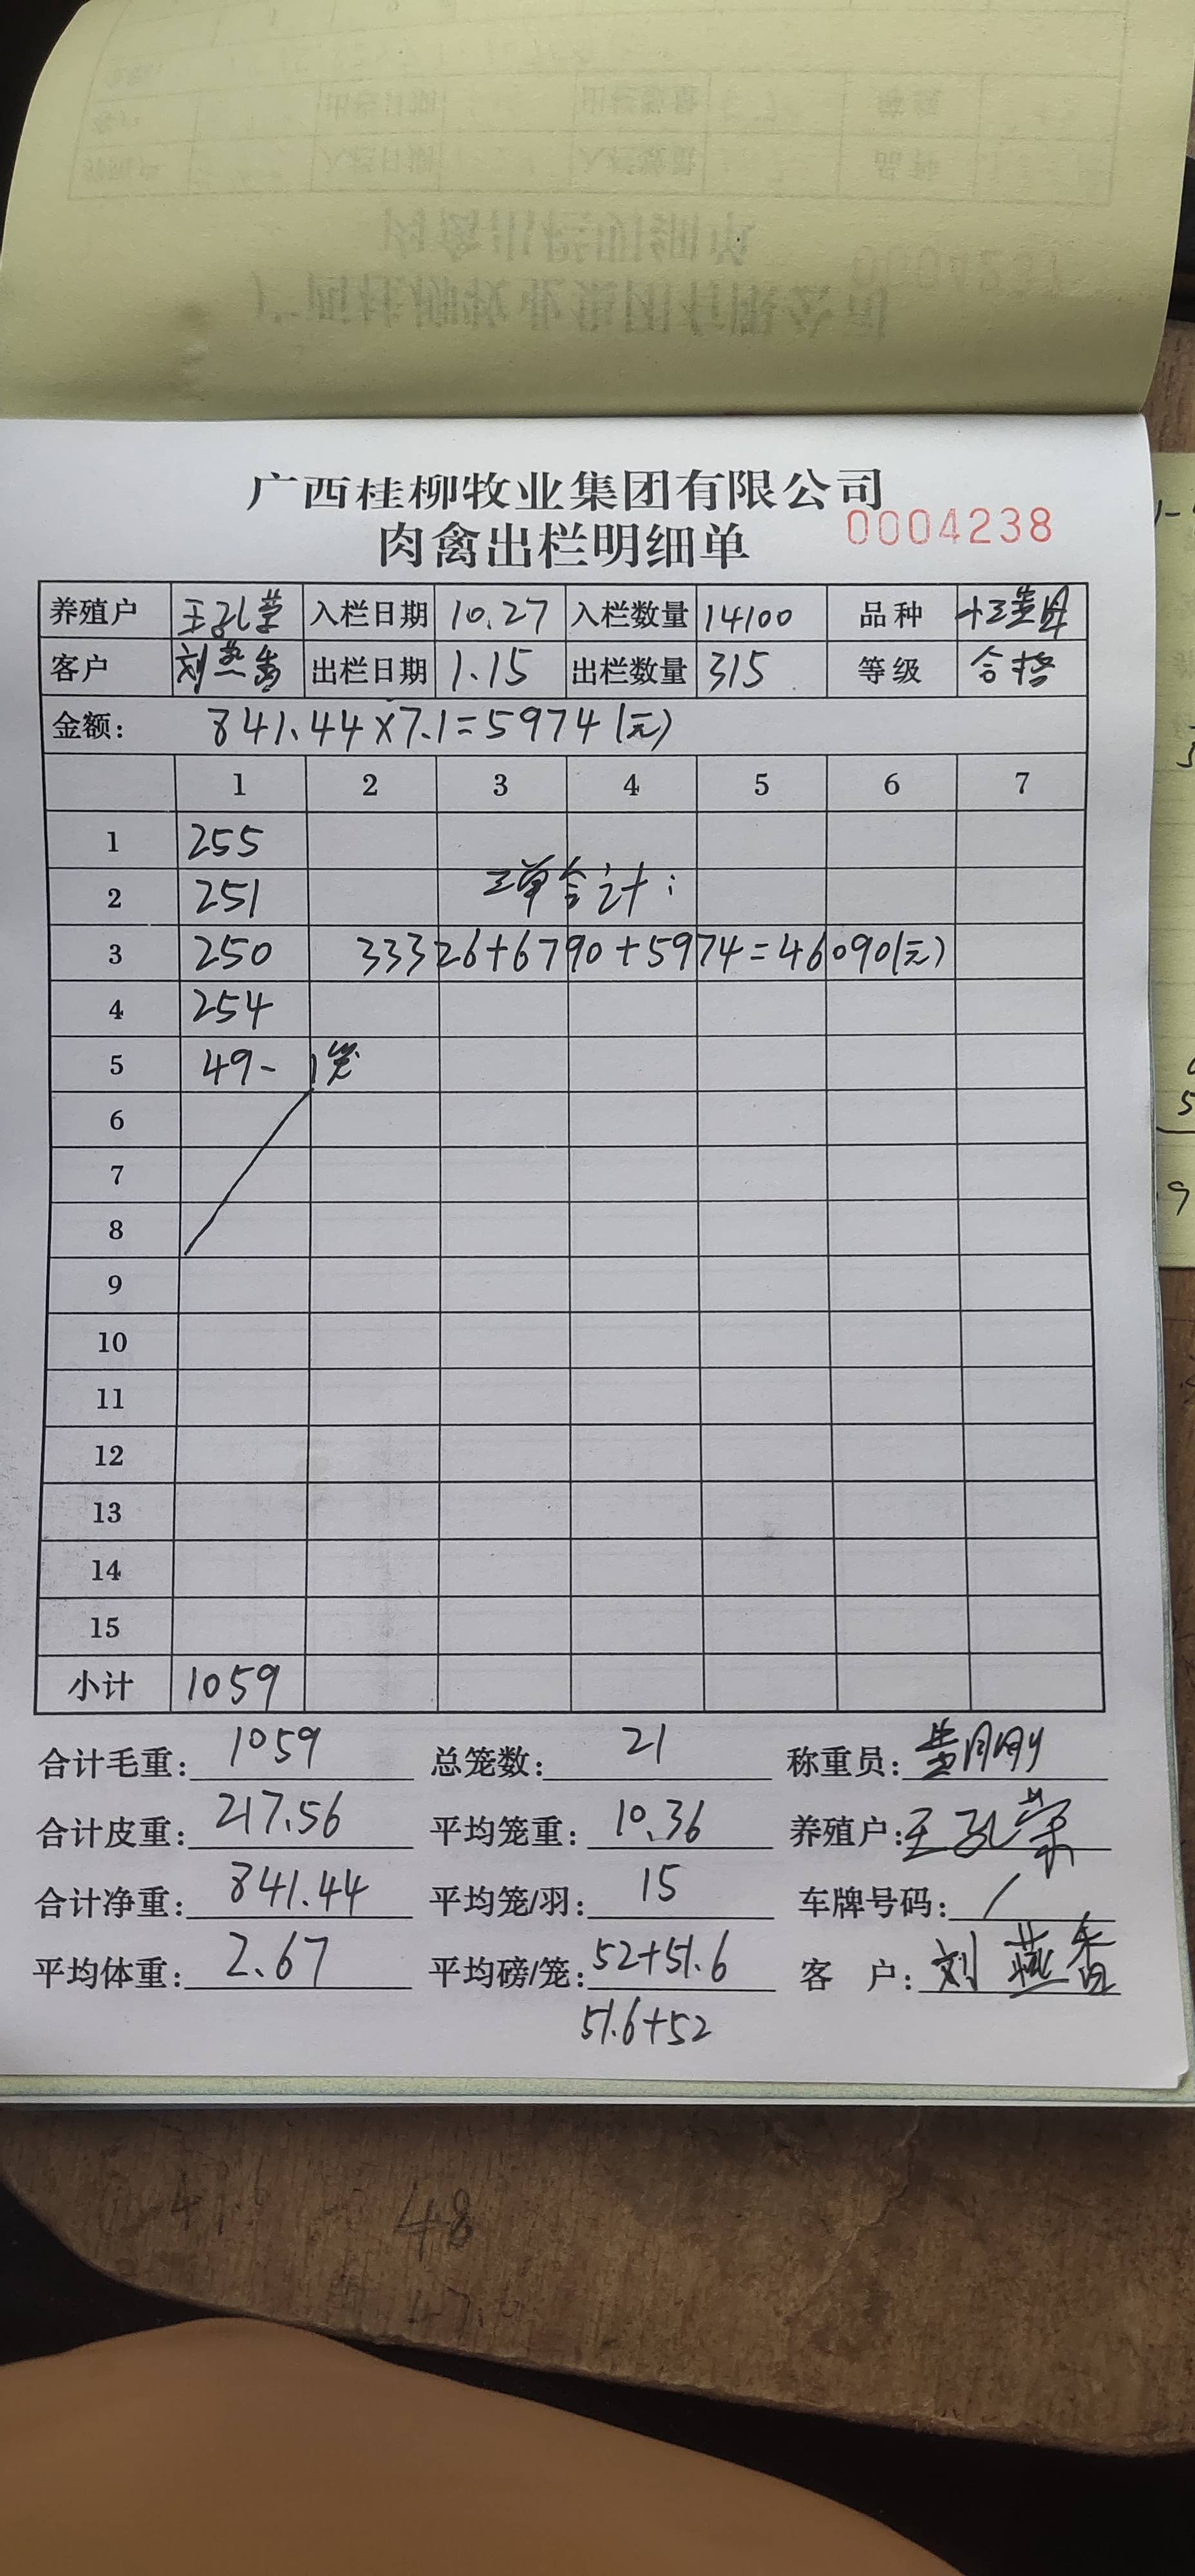 广西桂柳牧业集团有限公司
肉禽出栏明细单 0004238
养殖户 王孔荣 入栏日期 10.27 入栏数量 14100 品种
客户 刘燕香 出栏日期 1.15 出栏数量 315 等级 合格
金额: 841.44×7.1=5974(元)
1 2 3 4 5 6 7
1 255
2 251 三单合计:
3 250 33326+6790+5974=46090(元)
4 254
5 49- 1笼
6
7
8
9
10
11
12
13
14
15
小计 1059
合计毛重: 1059 总笼数: 21 称重员:
合计皮重: 217.56 平均笼重: 10.36 养殖户: 王孔荣
合计净重: 841.44 平均笼/羽: 15 车牌号码: /
平均体重: 2.67 平均磅/笼: 52+51.6 客 户: 刘燕香
51.6+52
48